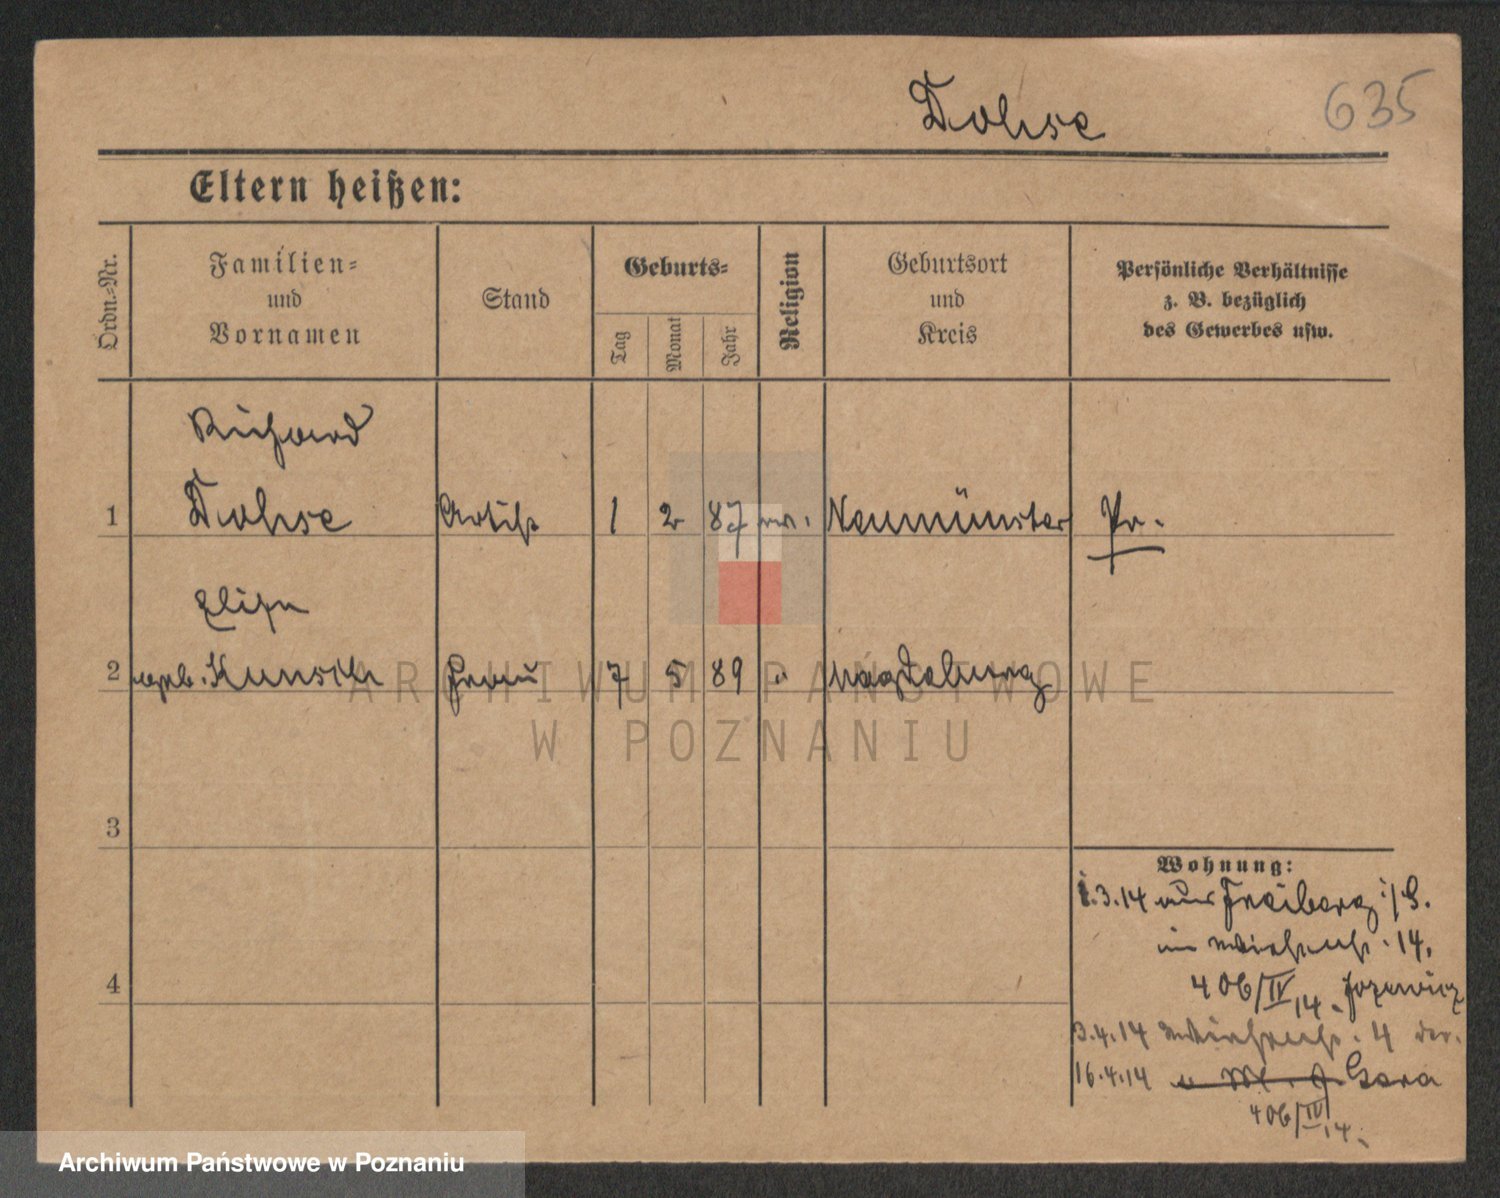 Dohse
635
Eltern heißen:
Ordn.-Nr.
Familien-
und
Vornamen
Stand
Geburts-
Tag
Monat
Jahr
Religion
Geburtsort
und
Kreis
Persönliche Verhältnisse
z. B. bezüglich
des Gewerbes usw.
Richard
1 Dohse Artist 1 2 87 ev. Neumünster Pr.
Elise
2 geb. Kunsch Frau 7 5 89 " Magdeburg
3
Wohnung:
1.3.14 aus Freiberg i/S.
14.
4
406/IV 14.
3.4.14 4
16.4.14 Gera
406/IV 14.
ARCHIWUM PAŃSTWOWE
W POZNANIU
Archiwum Państwowe w Poznaniu